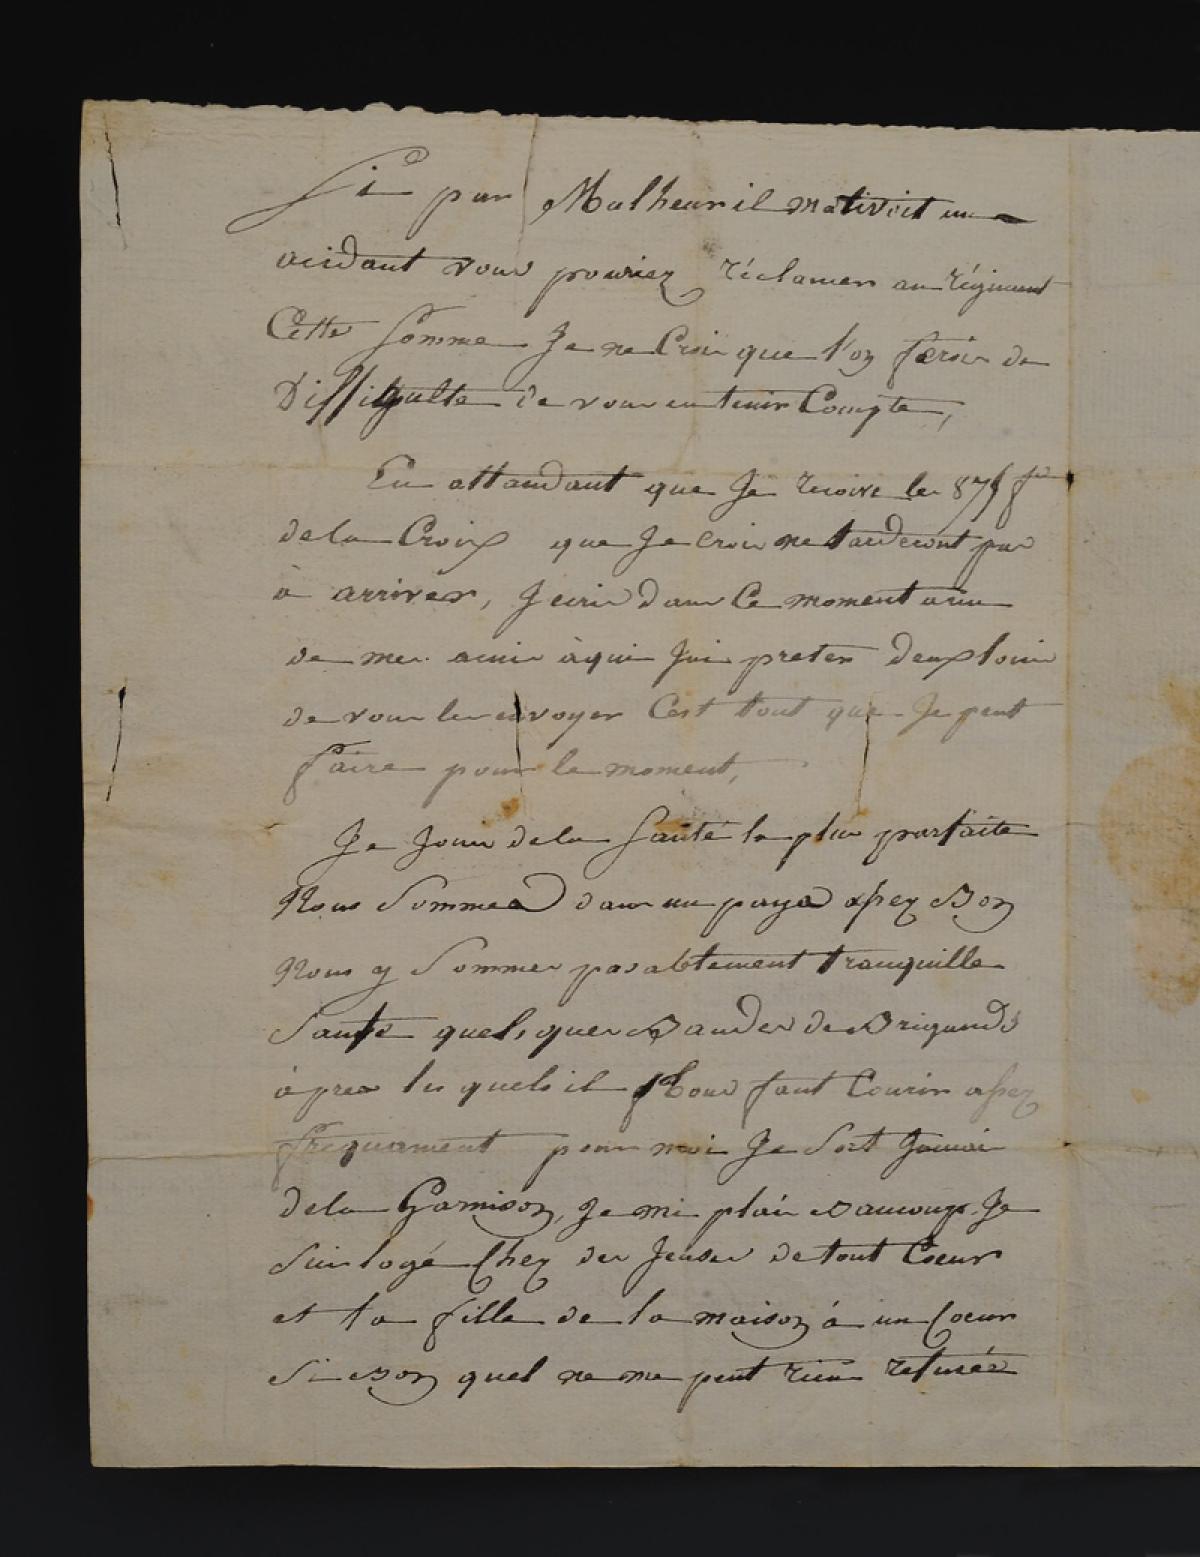 Si par Malheur il m'ativoit un
acidant vous pouriez réclamer au régiment
Cette Somme Je ne Croi que l'on feroi de
Diffigulte de vous en tenir Compte,
En attandant que Je recoive les 875 f
de la Croix que Je croi ne tarderont pas
à arriver, J ecris dans Ce moment a un
de mes amis à qui J'ai preter deux louis
de vous les envoyer C'est tout que Je peut
faire pour le moment,
Je Jouis de la Santé la plus parfaite
Nous Sommes dans un pays assez Bon
Nous y Sommes pasablement tranquille
Sauf quelques Bandes de Brigands
àpres les quels il Nous faut Courir assez
frequament pour moi Je Sort Jamais
de la Garnison, Je mi plais Baucoup Je
Suis logé Chez des Jenses de tout Coeur
et la fille de la maison à un Coeur
Si Bon quel ne me peut rien refusée